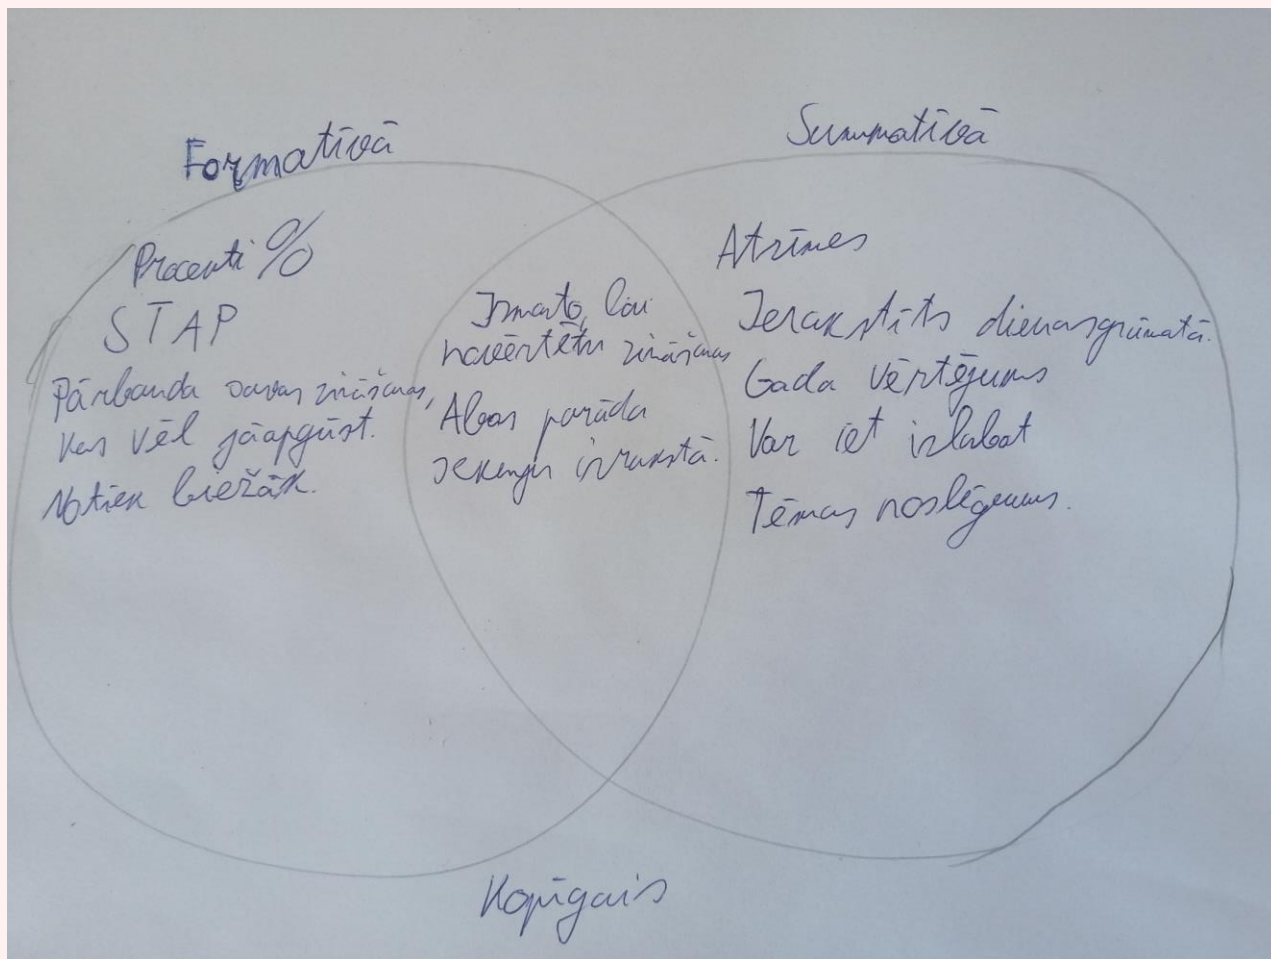 Formatīvā
Procenti %
STAP
Pārbauda savas zināšanas,
kas vēl jāapgūst.
Notiek biežāk.
Izmanto, lai
novērtētu zināšanas
Abas parāda
sekmju izrakstā.
Summatīvā
Atzīmes
Ierakstīts dienasgrāmatā.
Gada vērtējums
Var iet izlabot
Tēmas noslēgums.
Kopīgais